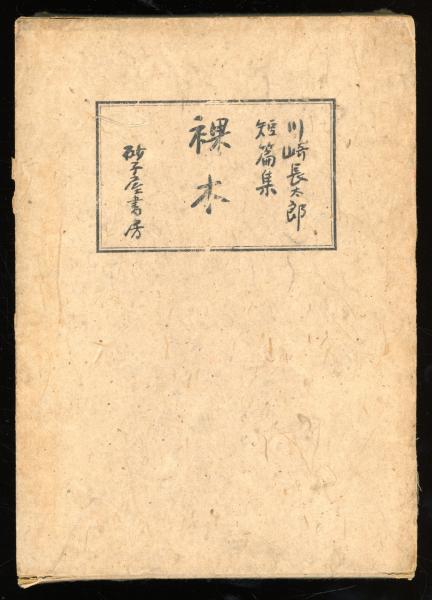 川崎長太郎
短篇集
裸木
砂子屋書房